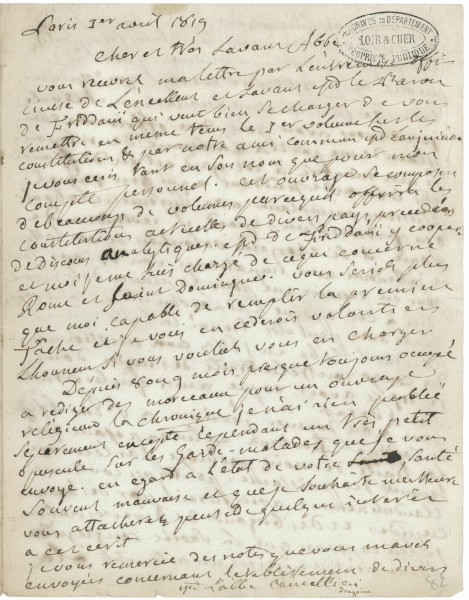 Paris 3er avril 1819
ARCHIVES DU DÉPARTEMENT
LOIR & CHER
cher et très Savant Abbé
vous recevrez ma lettre par l'entremise
de l'excellent et savant Mr le Baron
de Friddani qui veut bien se charger de vous
remettre en meme tems le 1er volume sur les
constitutions par notre ami commun Mr Lanjuinais
je vous ecris tant en Son nom que pour mon
compte personnel. cet ouvrage se composera
de beaucoup de volumes parcequ'il offrira les
constitutions actuelles de divers pays precedées
de discours analytiques. Mr de Friddani y coopere
et moi je me suis chargé de ce qui concerne
Rome et Saint Domingue. vous seriés plus
que moi capable de remplir la premiere
tache et je vous en cederois volontiers
l'honneur si vous vouliés vous en charger
Depuis 8 ou 9 mois presque toujours occupé
a rediger des morceaux pour un ouvrage
religieux la chronique je n'ai rien publié
separement excepté cependant un très petit
opuscule sur les Garde-malades que je vous
envoye. en egard à l'état de votre santé
souvent mauvaise et que je souhaite meilleure
vous attacherez peut etre quelque interêt
a cet ecrit
je vous remercie des notes que vous m'avés
envoyées concernant l'etablissement de divers
Mr l'abbé Cancellieri